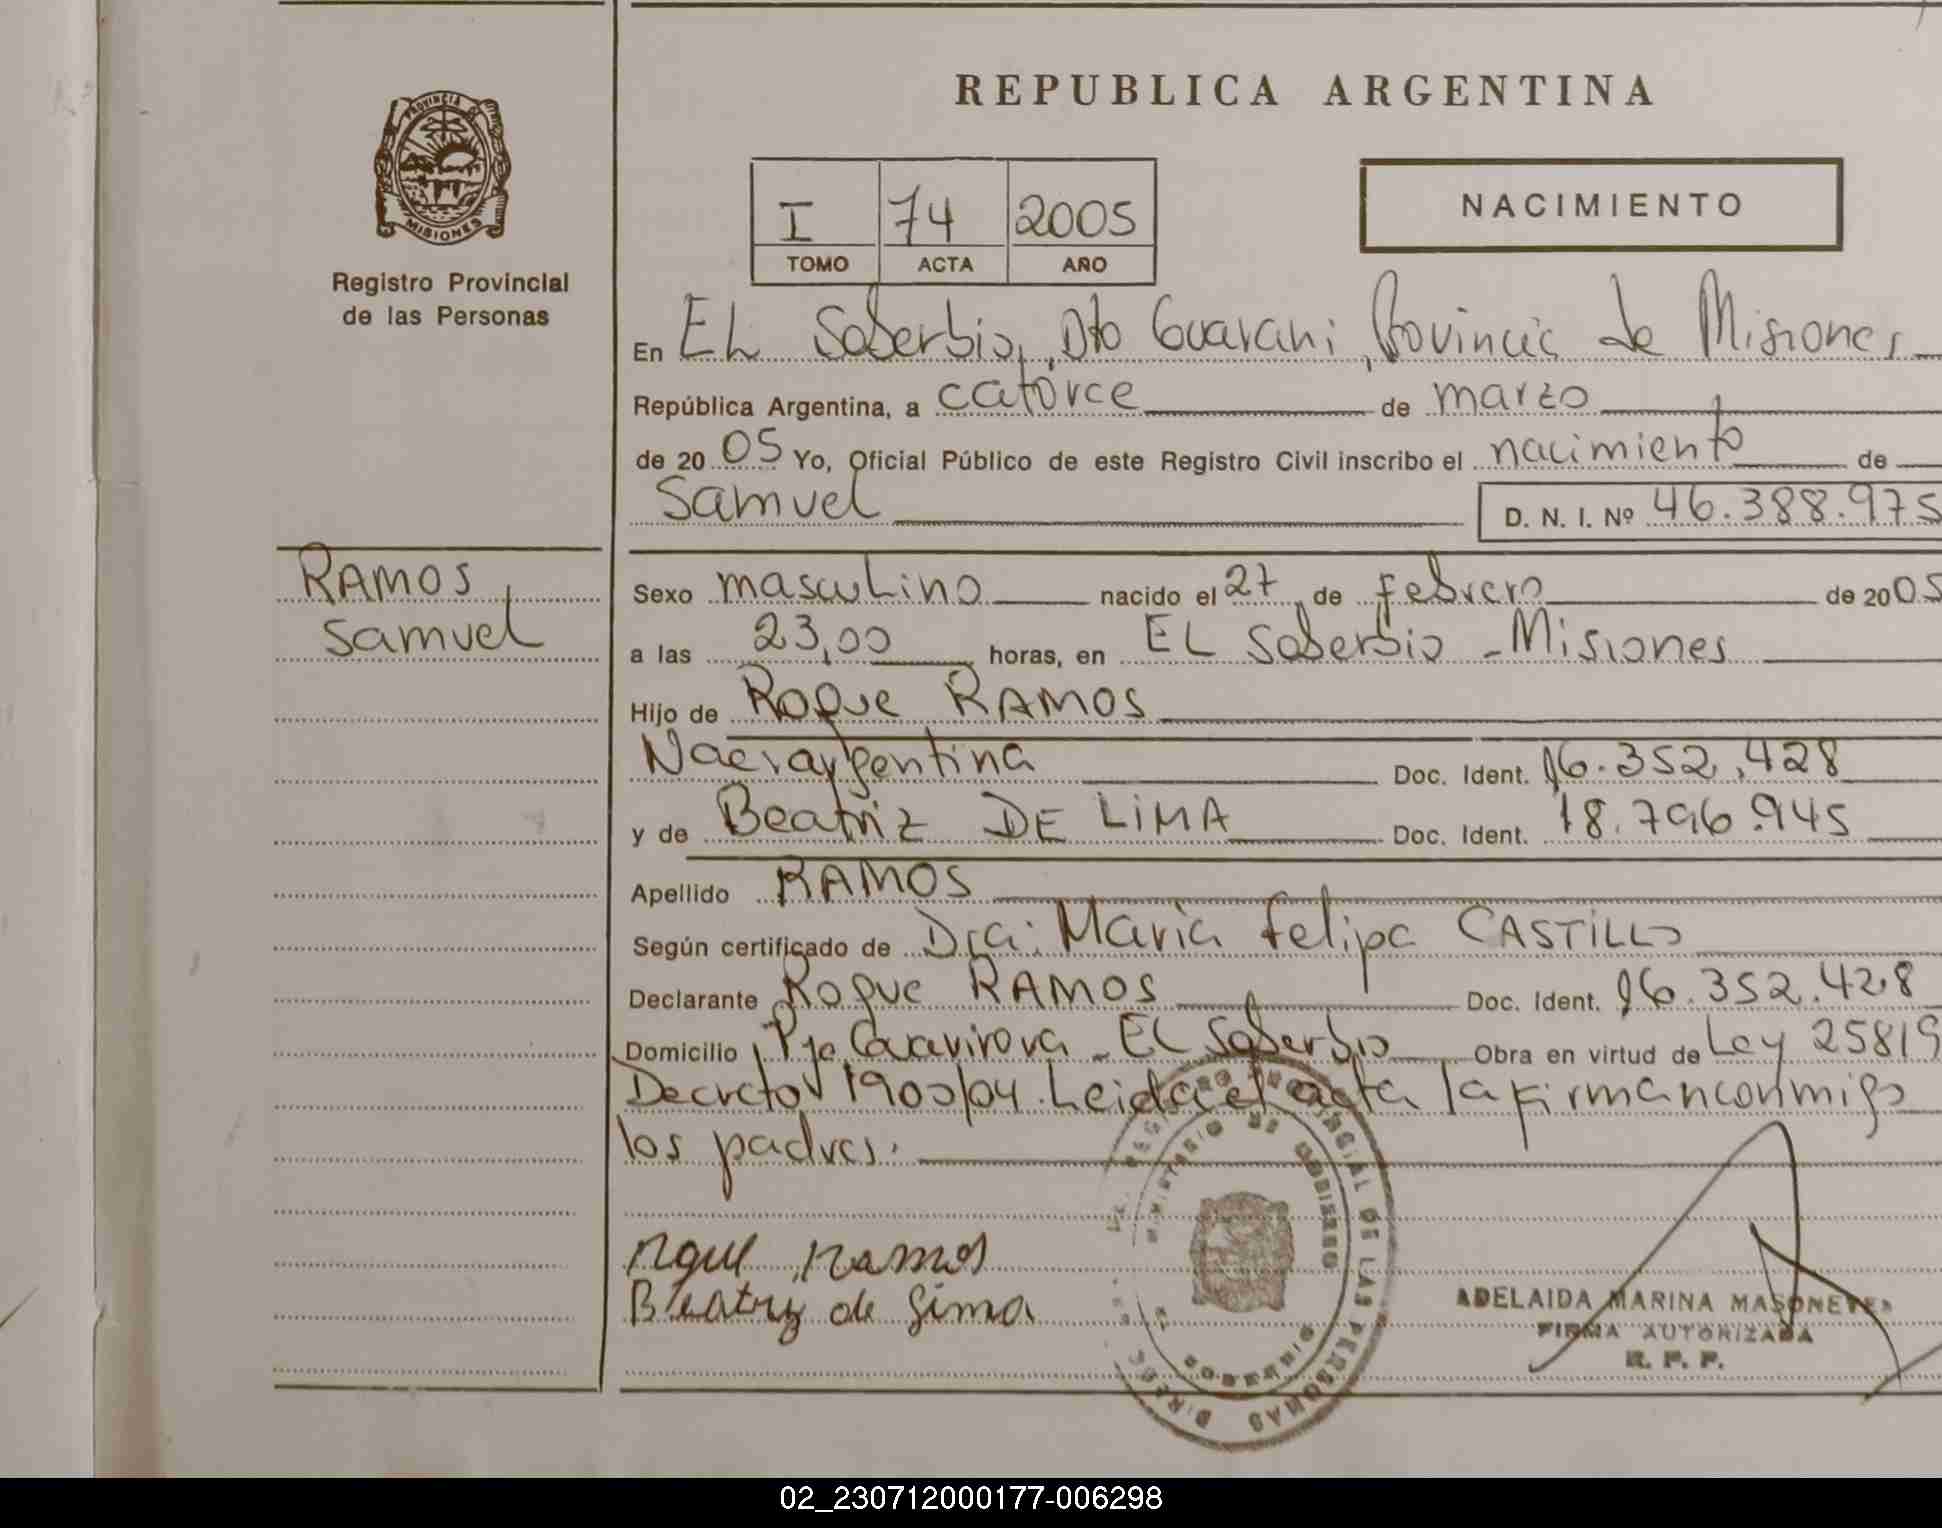 REPUBLICA ARGENTINA
PROVINCIA DE
MISIONES
Registro Provincial
de las Personas
I 74 2005
TOMO ACTA AÑO
NACIMIENTO
En EL Soberbio, Dto Guarani, Provincia de Misiones
República Argentina, a catorce de marzo
de 2005 Yo, Oficial Público de este Registro Civil inscribo el nacimiento de
Samuel D. N. I. Nº 46.388.975
RAMOS
Samuel
Sexo masculino nacido el 27 de febrero de 2005
a las 23,00 horas, en EL Soberbio - Misiones
Hijo de Roque RAMOS
Nac: argentina Doc. Ident. 16.352.428
y de Beatriz DE LIMA Doc. Ident. 18.796.945
Apellido RAMOS
Según certificado de Dra: Maria Felipa CASTILLO
Declarante Roque RAMOS Doc. Ident. 16.352.428
Domicilio Pje - EL Soberbio Obra en virtud de Ley 25819
Decreto 1900/04. Leida el acta la firman conmigo
los padres.
Roque Ramos
Beatriz de Lima
REGISTRO PROVINCIAL DE LAS PERSONAS
MINISTERIO DE GOBIERNO
ADELAIDA MARINA
FIRMA AUTORIZADA
R. P. P.
02_230712000177-006298